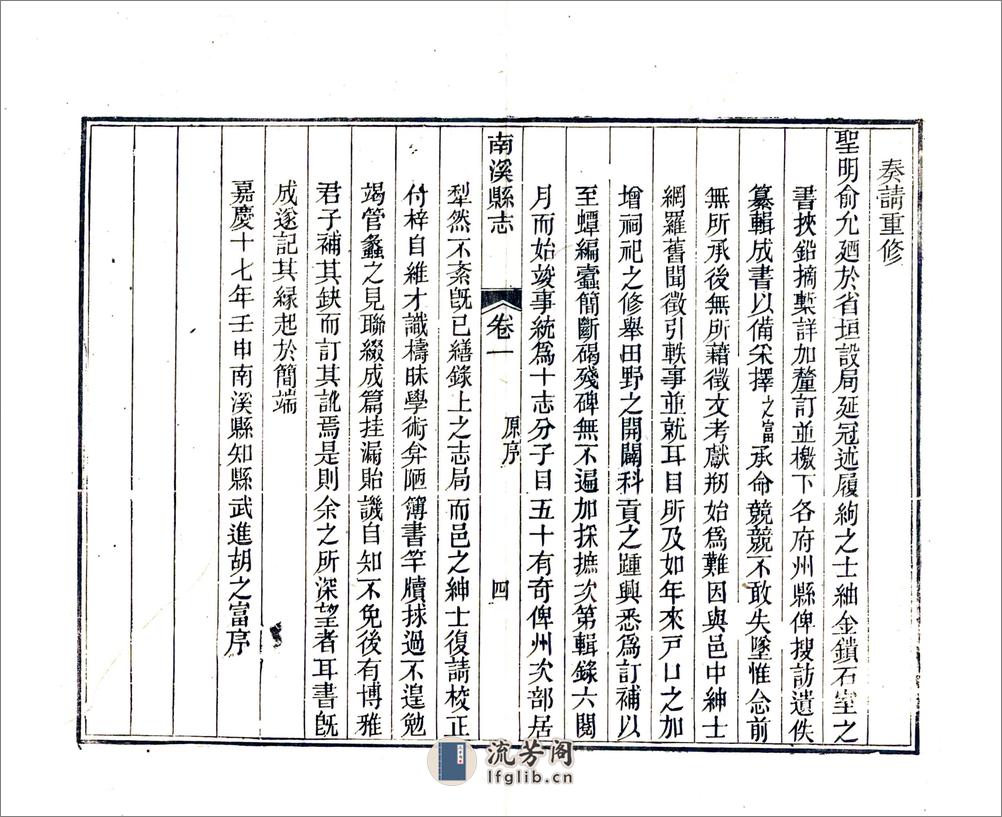 奏請重修
聖明俞允廼於省垣設局延冠述履絢之士紬金鎖石室之
書挾鉛摘槧詳加釐訂並檄下各府州縣俾搜訪遺佚
纂輯成書以備采擇之富承命競競不敢失墜惟念前
無所承後無所藉徵文考獻剏始為難因與邑中紳士
網羅舊聞徵引軼事並就耳目所及如年來戸口之加
增祠祀之修舉田野之開闢科貢之踵興悉為訂補以
至蟫編蠹簡斷碣殘碑無不遍加採摭次第輯錄六閱
月而始竣事統為十志分子目五十有奇俾州次部居
南溪縣志 卷一 原序 四
犁然不紊旣已繕錄上之志局而邑之紳士復請校正
付梓自維才識檮昧學術弇陋簿書竿牘捄過不遑勉
竭管蠡之見聯綴成篇挂漏貽譏自知不免後有博雅
君子補其缺而訂其訛焉是則余之所深望者耳書旣
成遂記其緣起於簡端
嘉慶十七年壬申南溪縣知縣武進胡之富序
流芳阁
lfglib.cn